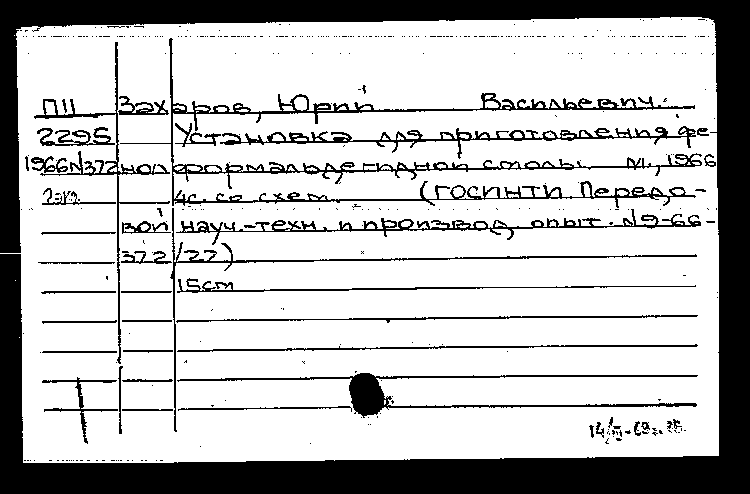 П11 Захаров, Юрий Васильевич.
2295 Установка для приготовления фе-
1966N372 нолформальдегидной смолы. М., 1966
2экз. 4с. со схем. (ГОСИНТИ. Передо-
вой науч.-техн. и производ. опыт. N9-66-
372/27)
15см